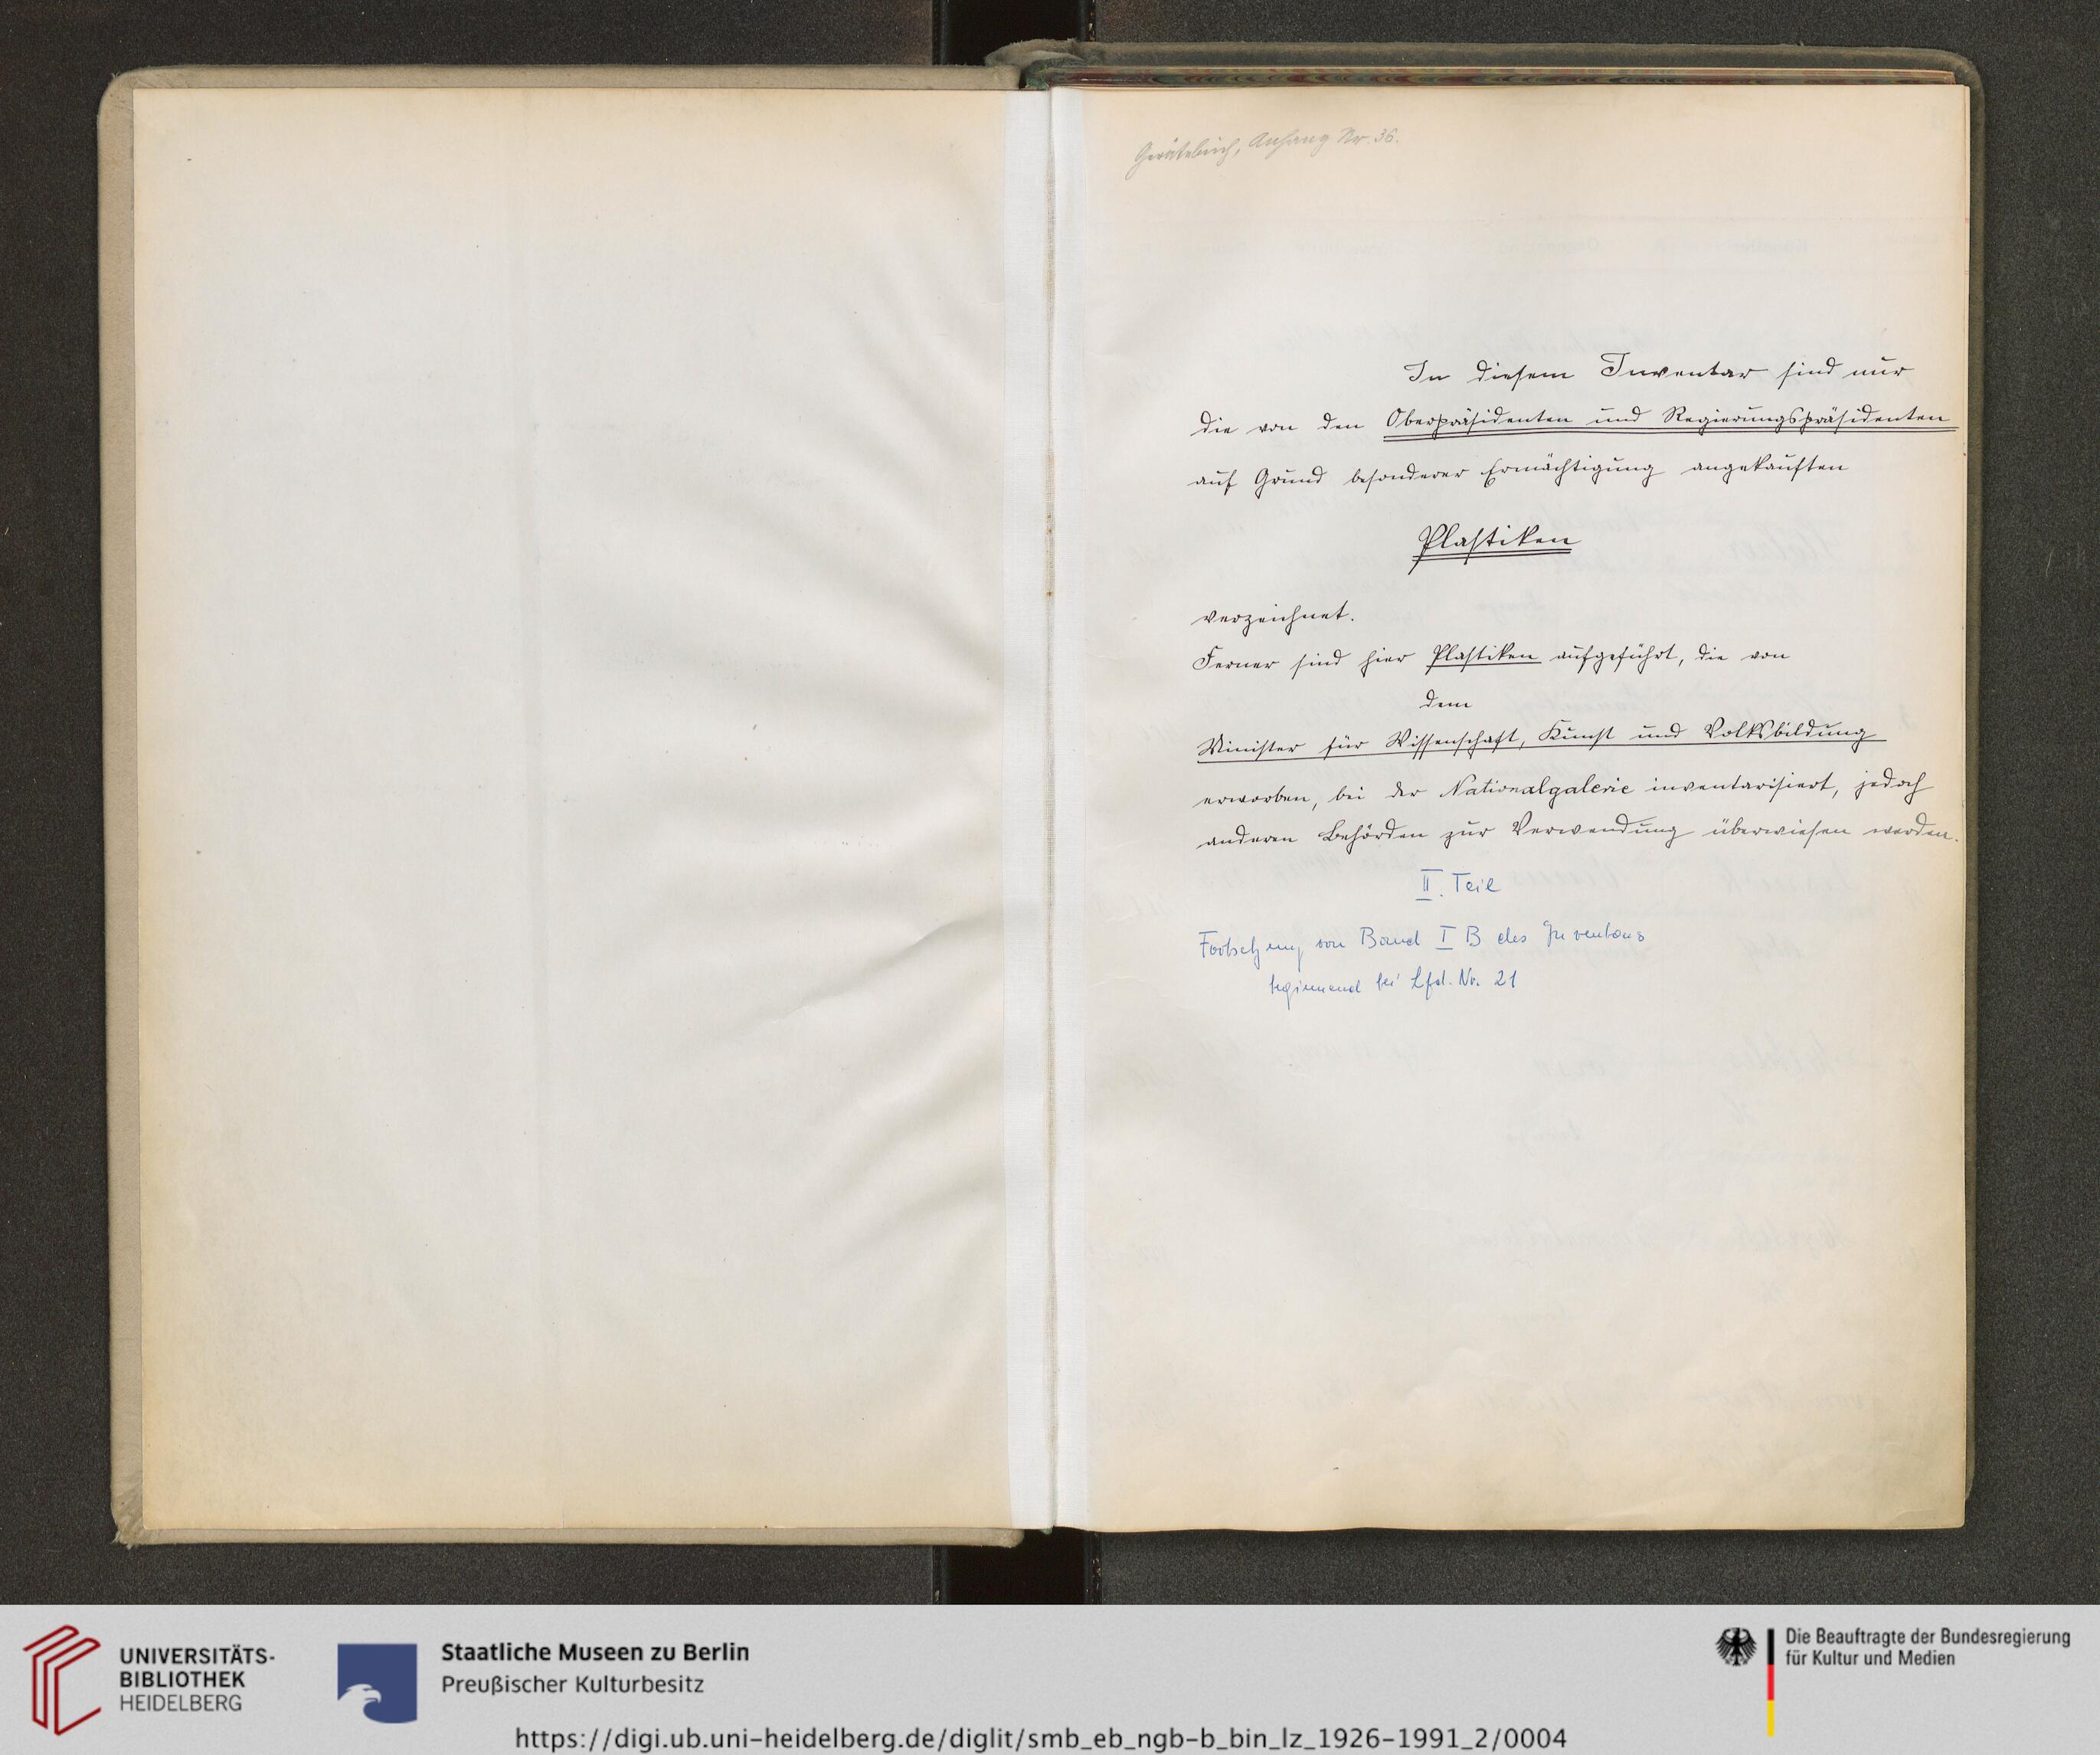 Gerätebuch, Anhang Nr. 36.
In diesem Inventar sind nur
die von den Oberpräsidenten und Regierungspräsidenten
auf Grund besonderer Ermächtigung angekauften
Plastiken
verzeichnet.
Ferner sind hier Plastiken aufgeführt, die von
dem
Minister für Wissenschaft, Kunst und Volksbildung
erworben, bei der Nationalgalerie inventarisiert, jedoch
anderen Behörden zur Verwendung überwiesen worden.
II. Teil
Fortsetzung von Band I B des Inventars
beginnend bei Lfd. Nr. 21
UNIVERSITÄTS-
BIBLIOTHEK
HEIDELBERG
Staatliche Museen zu Berlin
Preußischer Kulturbesitz
Die Beauftragte der Bundesregierung
für Kultur und Medien
https://digi.ub.uni-heidelberg.de/diglit/smb_eb_ngb-b_bin_lz_1926-1991_2/0004